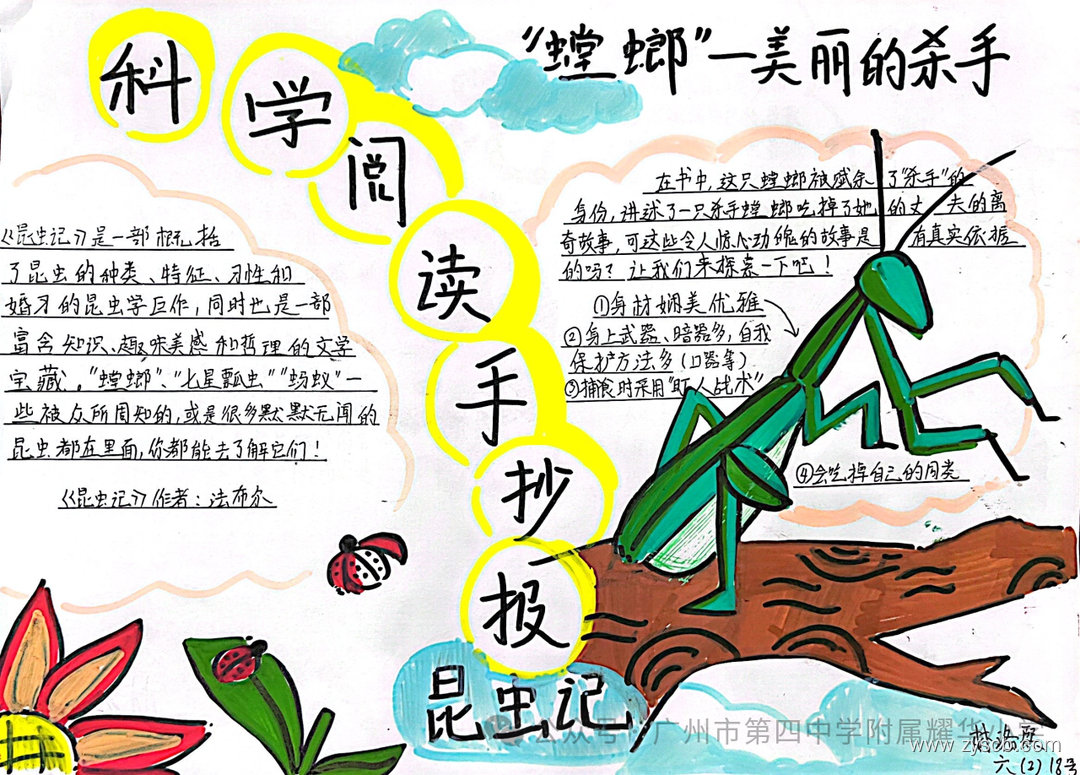 科学阅读手抄报
昆虫记
"螳螂"一美丽的杀手
《昆虫记》是一部概括
了昆虫的种类、特征、习性和
婚习的昆虫学巨作，同时也是一部
富含知识、趣味美感和哲理的文学
宝藏。"螳螂"、"七星瓢虫""蚂蚁"一
些被众所周知的，或是很多默默无闻的
昆虫都在里面，你都能去了解它们！
《昆虫记》作者：法布尔
在书中，这只螳螂被赋予了"杀手"的
身份，讲述了一只杀手螳螂吃掉了她的丈夫的离
奇故事，可这些令人惊心动魄的故事是有真实依据
的吗？让我们来探索一下吧！
①身材娴美优雅
②身上武器、暗器多，自我
保护方法多（口器等）
③捕食时采用"盯人战术"
④会吃掉自己的同类
公众号：广州市第四中学附属耀华小学
www.zyscb.com
六（2）18号